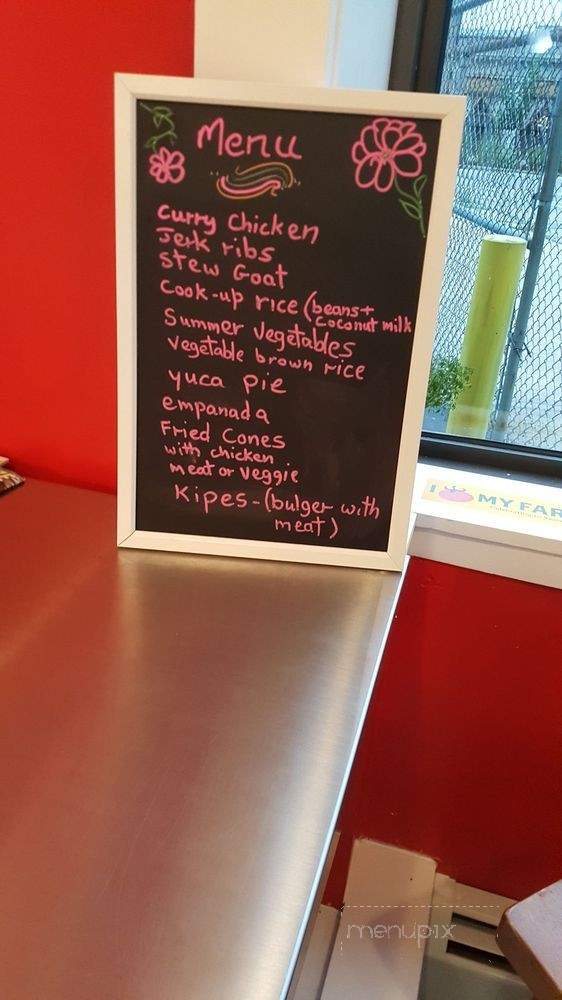 Menu
Curry Chicken
Jerk ribs
Stew Goat
Cook-up rice (beans+
Coconut milk
Summer Vegetables
Vegetable brown rice
yuca pie
empanada
Fried Cones
with chicken
meat or Veggie
Kipes-(bulger with
meat)
I MY FAR
menupix